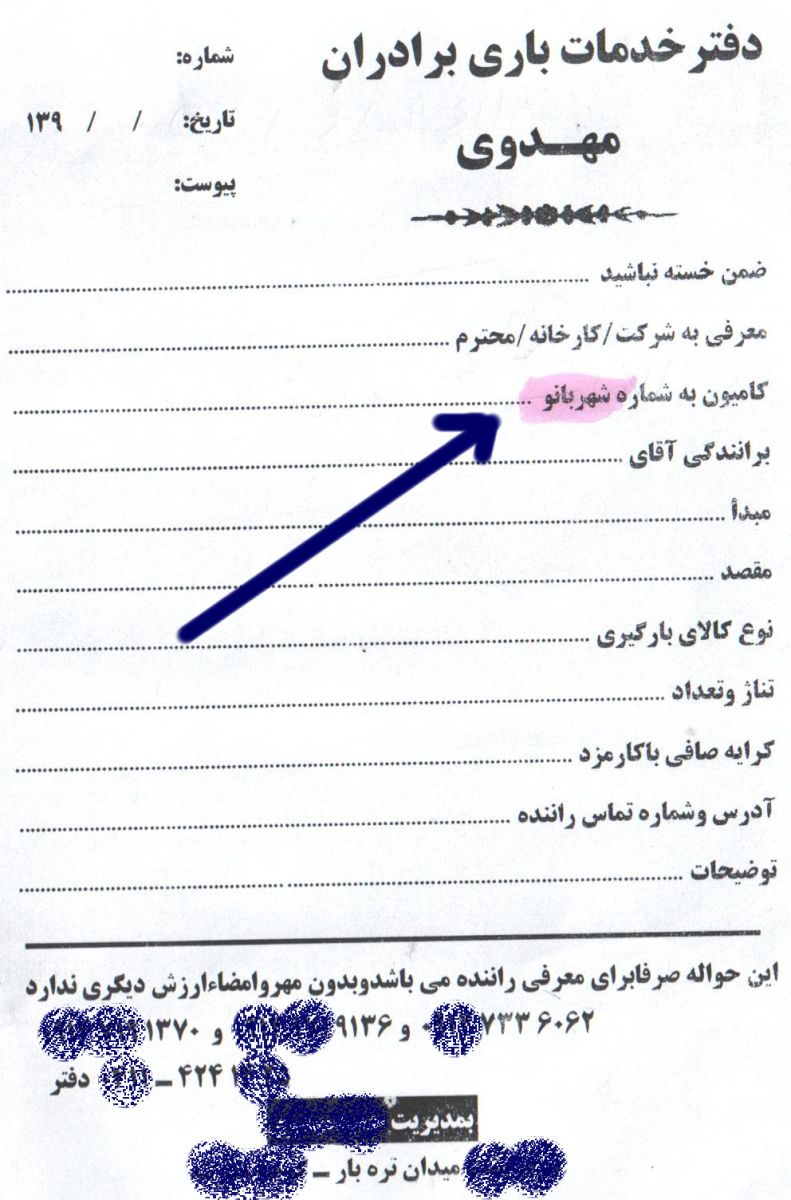 دفتر خدمات باری برادران
مهـــدوی
شماره:
تاریخ: / / ۱۳۹
پیوست:
ضمن خسته نباشید ....................
معرفی به شرکت/کارخانه/محترم ....................
کامیون به شماره شهربانو ....................
برانندگی آقای ....................
مبدأ ....................
مقصد ....................
نوع کالای بارگیری ....................
تناژ وتعداد ....................
کرایه صافی باکارمزد ....................
آدرس وشماره تماس راننده ....................
توضیحات ....................
این حواله صرفابرای معرفی راننده می باشدوبدون مهروامضاءارزش دیگری ندارد
۷۳۳ ۶۰۶۲ و ۹۱۳۶ و ۱۳۷۰
۴۲۴ ـ دفتر
بمدیریت
میدان تره بار ـ